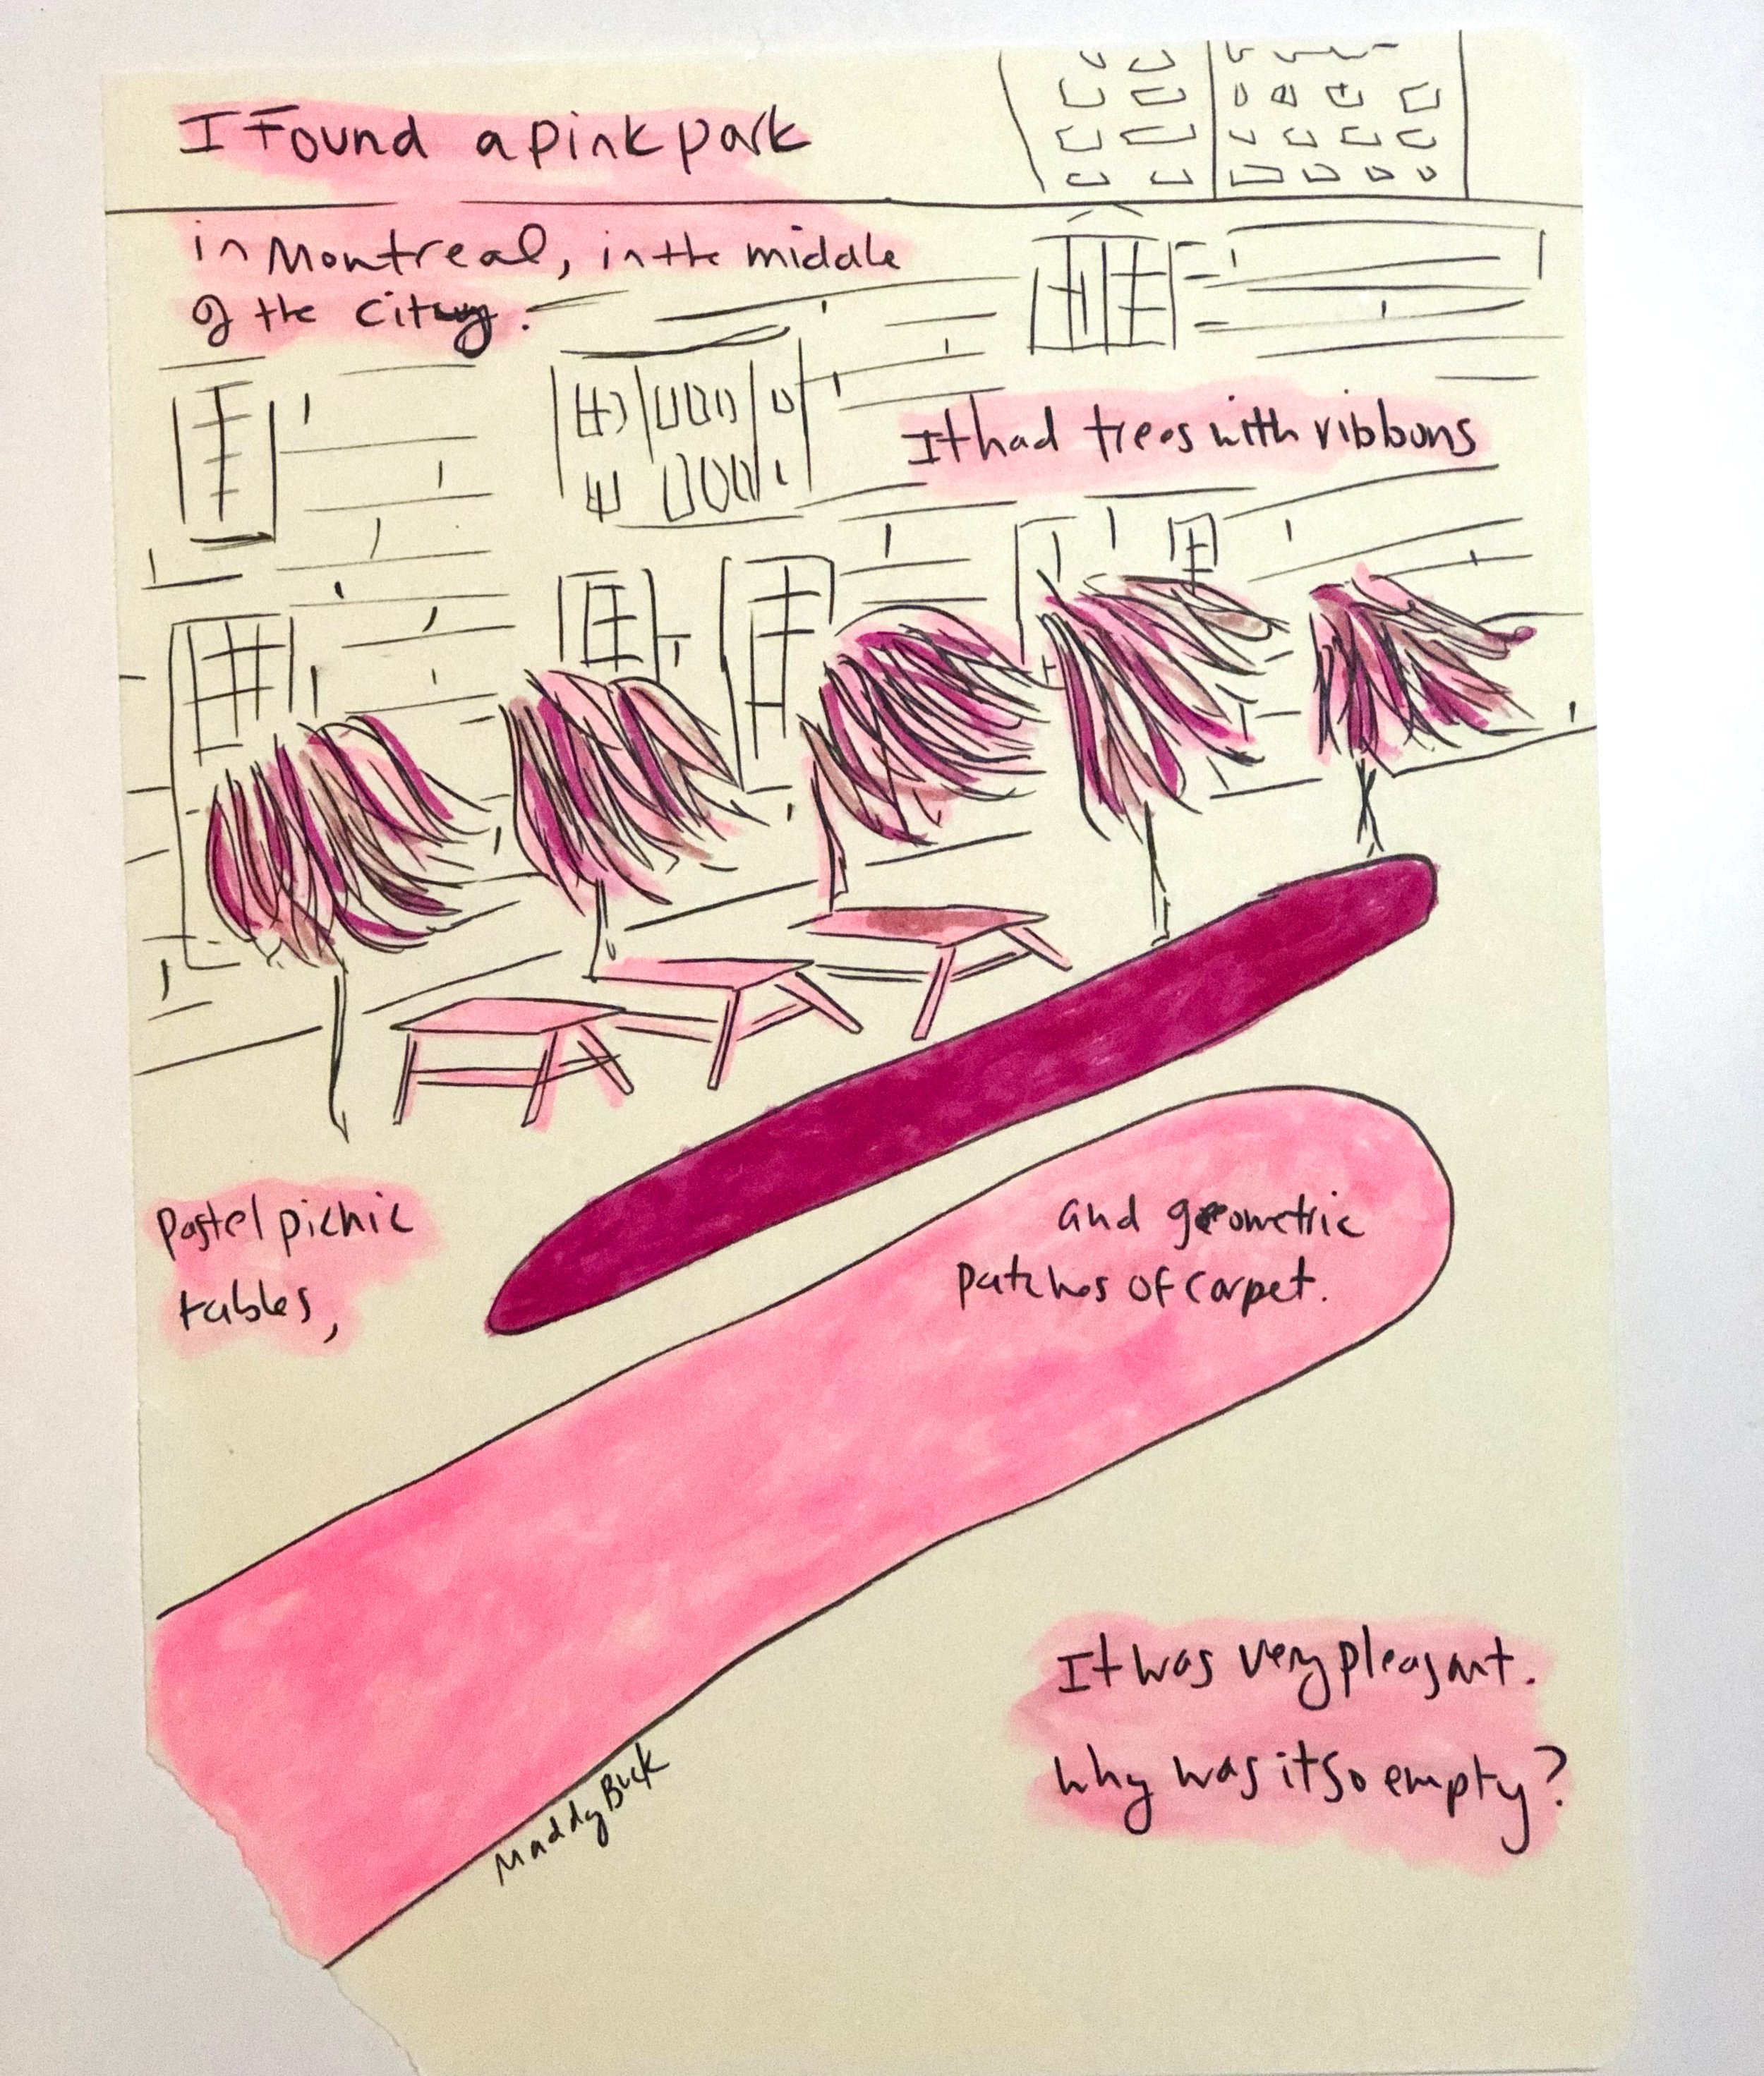 I Found a pink park
in Montreal, in the middle
of the City.
It had trees with ribbons
Pastel picnic
tables,
and geometric
patches of carpet.
It was very pleasant.
Why was it so empty?
Maddy Buck